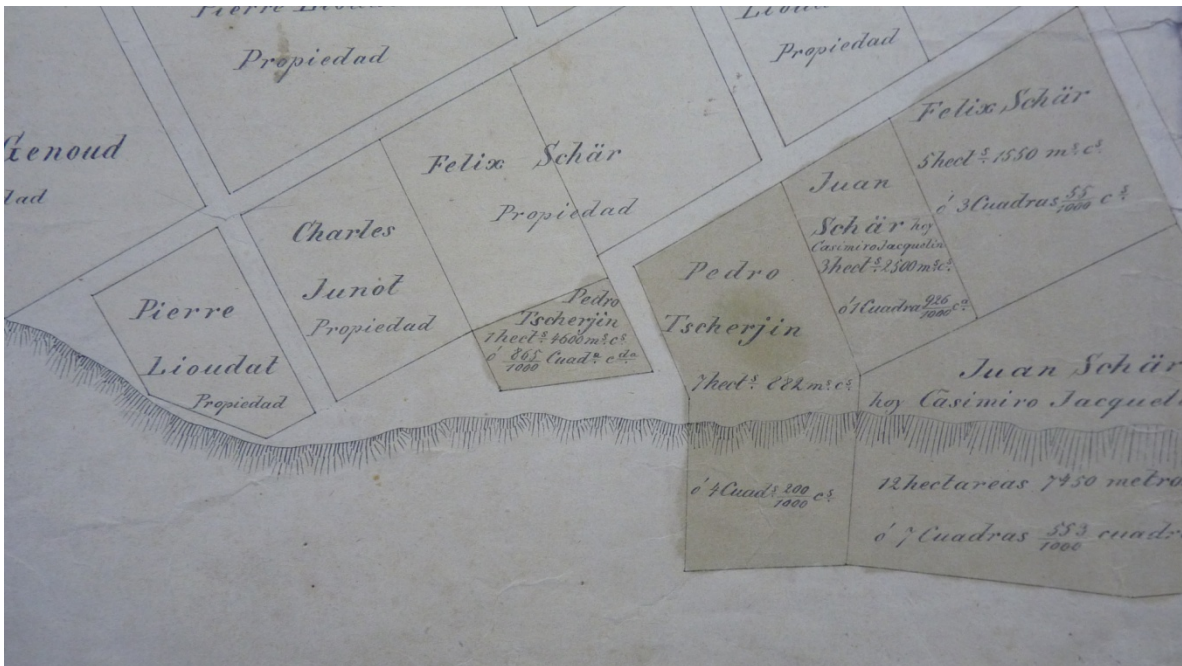 Pierre
Propiedad
Propiedad
Genoud
dad
Felix Schär
Propiedad
Charles
Junot
Propiedad
Pierre
Lioudat
Propiedad
Pedro
Tscherjin
1 hect.s 4600 m.s c.s
ó 865/1000 Cuad.a c.da
Pedro
Tscherjin
7 hect.s 882 m.s c.s
ó 4 Cuad.s 200/1000 c.s
Juan
Schär hoy
Casimiro Jacquelin
3 hect.s 2500 m.s c.s
ó 1 Cuadra 926/1000 c.a
Felix Schär
5 hect.s 1550 m.s c.s
ó 3 Cuadras 55/1000 c.s
Juan Schär
hoy Casimiro Jacquel
12 hectareas 7450 metro
ó 7 Cuadras 553/1000 cuadr